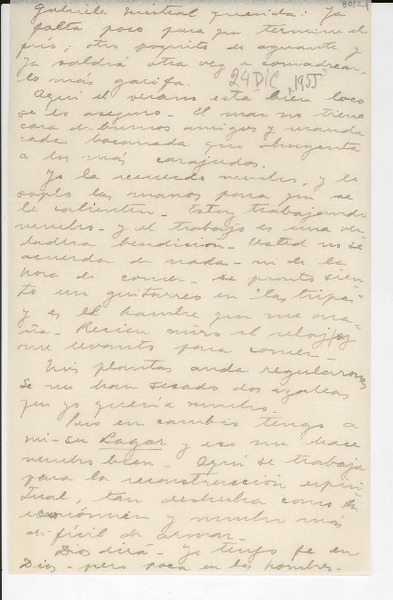 8052.1
Gabriela Mistral querida: Ya
falta poco para que termine el
frío; otro poquito de aguante y
ya saldrá otra vez a comadrear,
lo más garifa.
24 DIC, 1955
Aquí el verano está bien loco
se lo aseguro. El mar no tiene
cara de buenos amigos y manda
cada bocanada que ahuyenta
a los más corajudos.
Yo la recuerdo mucho, y le
soplo las manos para que se
le calienten. Estoy trabajando
mucho - y el trabajo es una ver
dadera bendición. Usted no se
acuerda de nada - ni de la
hora de comer - de pronto sien-
to un guitarreo en "las tripas"
y es el hambre que me ara-
ña. Recién miro el reloj y
me levanto para comer -
Mis plantas anda regularonas
Se me han secado dos azaleas
que yo quería mucho.
Pero en cambio tengo a
mi-su Lagar y eso me hace
mucho bien. Aquí se trabaja
para la reconstrucción espiri-
tual, tan deshecha como la
económica y mucho más
difícil de armar.
Dios dirá - Yo tengo fe en
Dios - pero poca en los hombres.